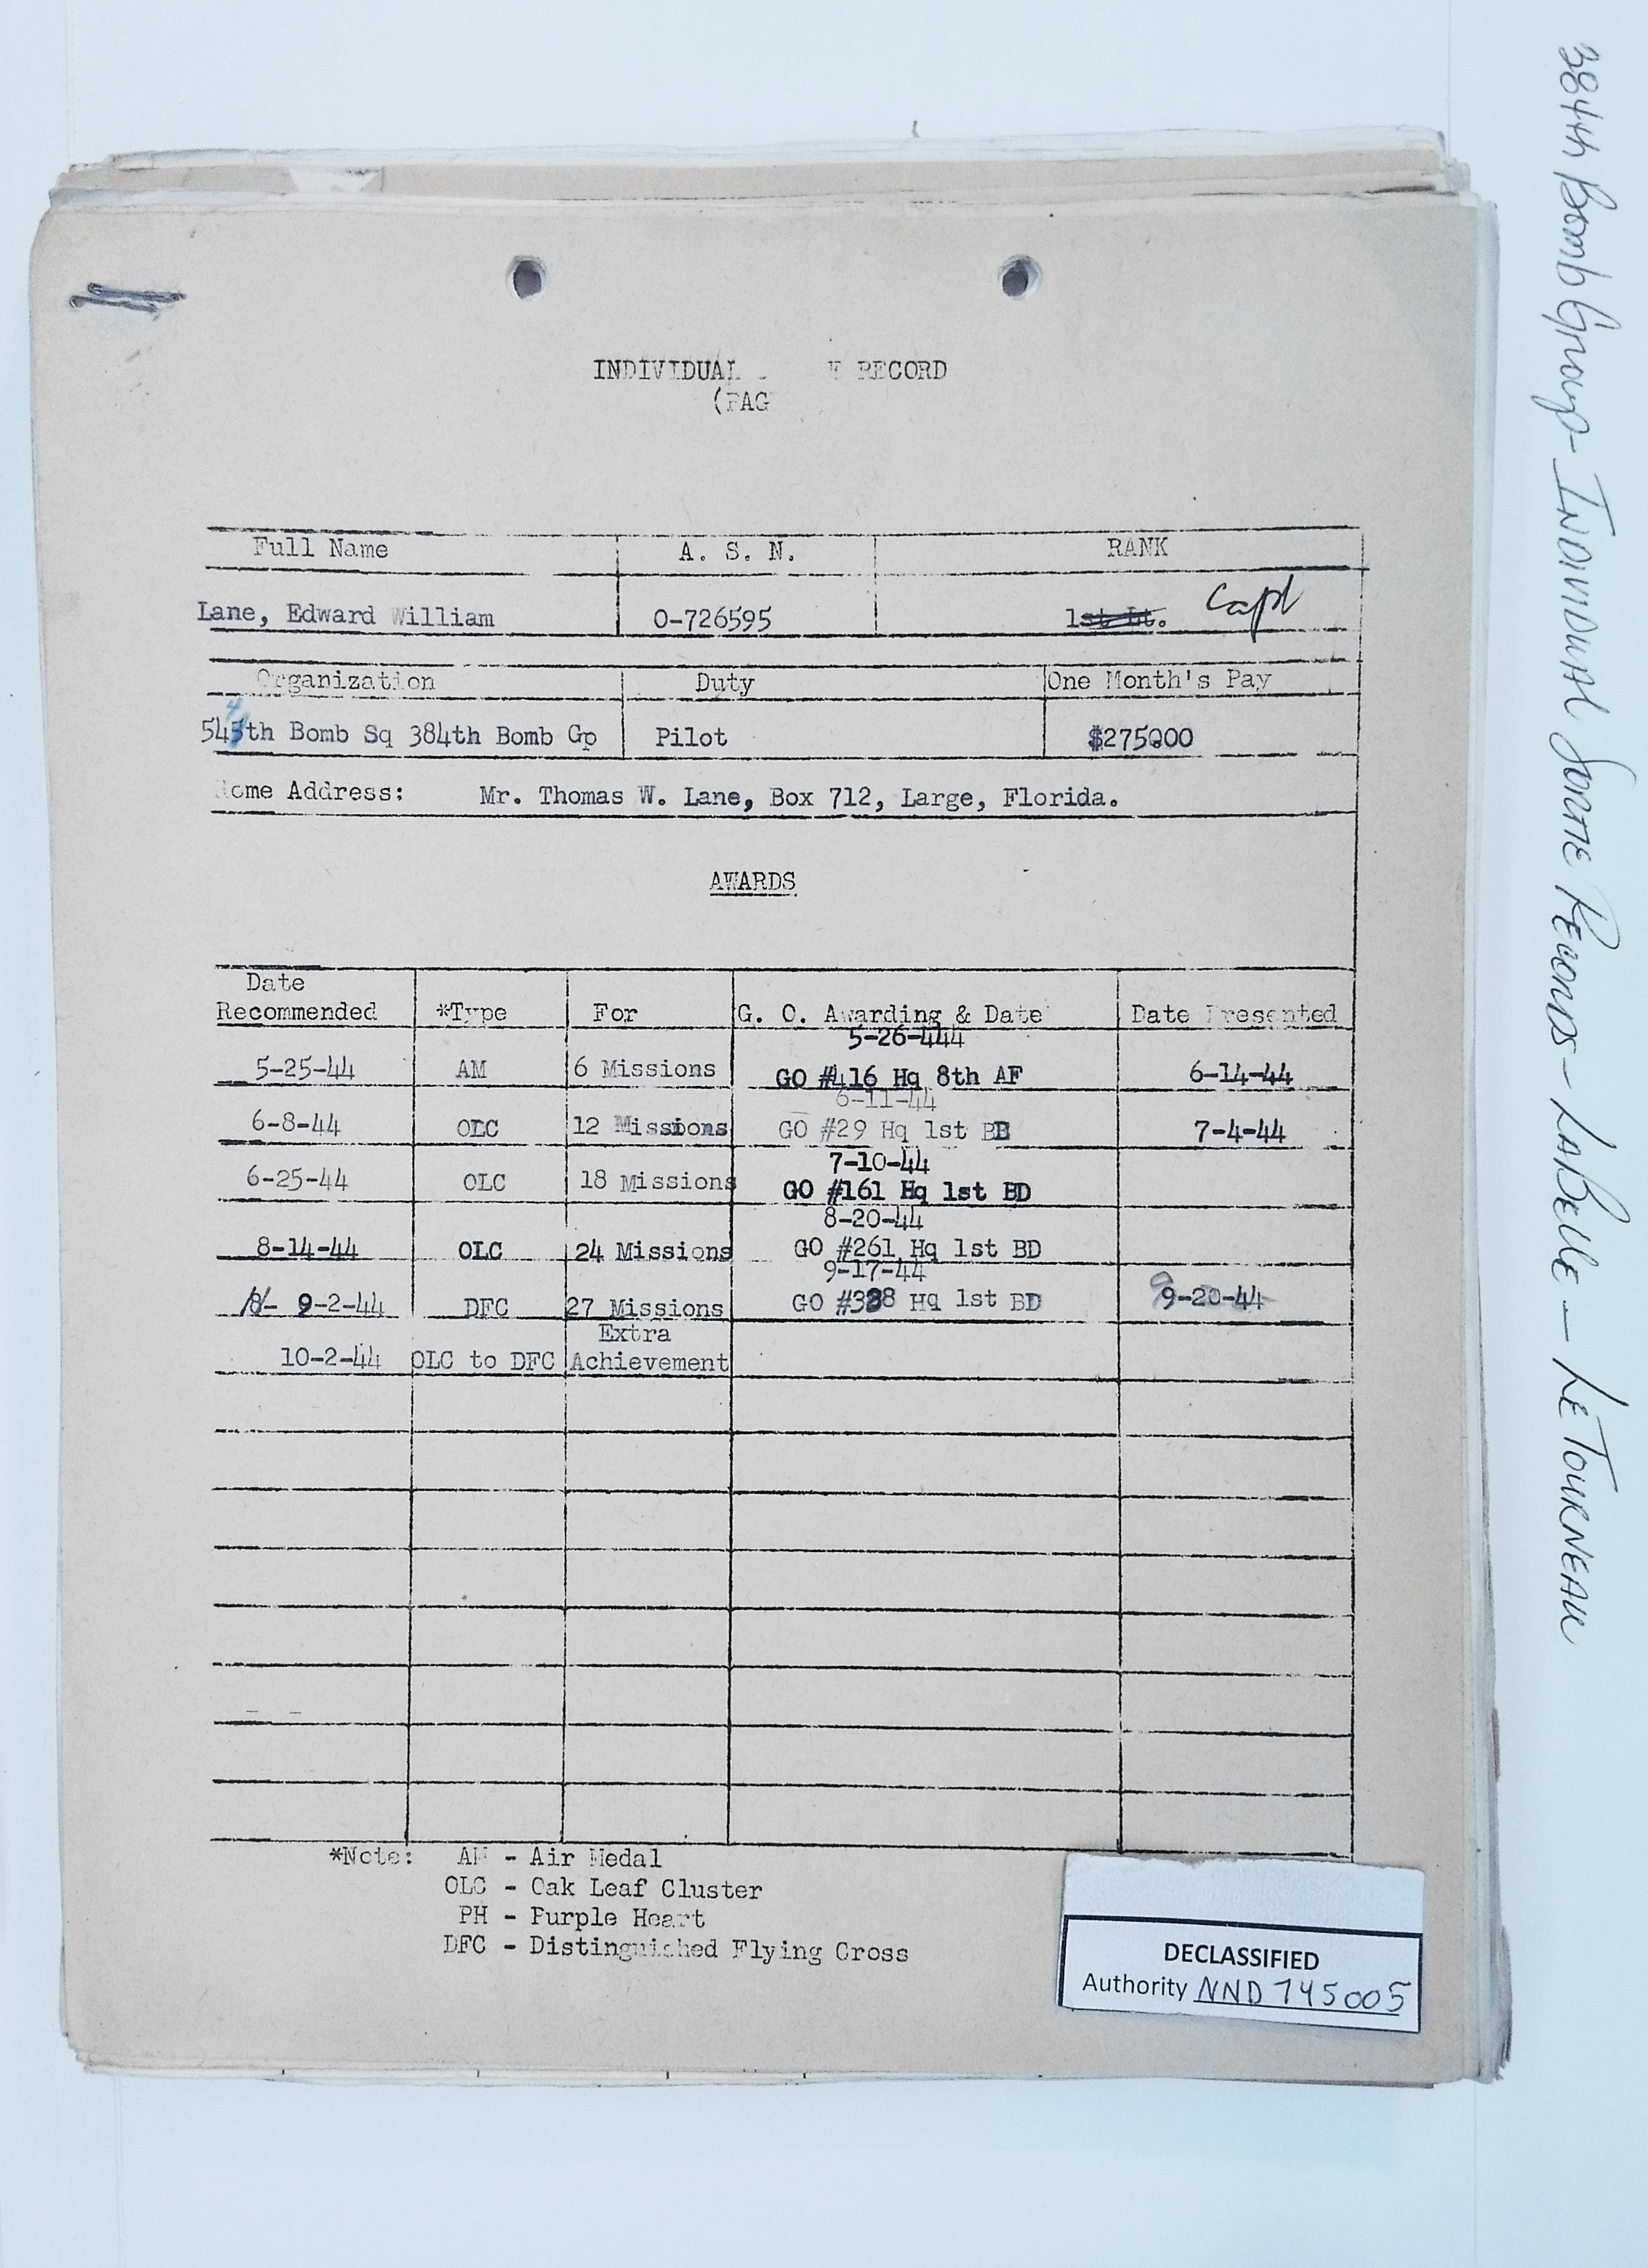 INDIVIDUAL RECORD
(PAG
Full Name A. S. N. RANK
Lane, Edward William 0-726595 1st Lt. Capt
Organization Duty One Month's Pay
544th Bomb Sq 384th Bomb Gp Pilot $275.00
Home Address: Mr. Thomas W. Lane, Box 712, Large, Florida.
AWARDS
Date
Recommended *Type For G. O. Awarding & Date Date Presented
5-26-444
5-25-44 AM 6 Missions GO #416 Hq 8th AF 6-14-44
6-11-44
6-8-44 OLC 12 Missions GO #29 Hq 1st BD 7-4-44
7-10-44
6-25-44 OLC 18 Missions GO #161 Hq 1st BD
8-20-44
8-14-44 OLC 24 Missions GO #261 Hq 1st BD
9-17-44
9-2-44 DFC 27 Missions GO Hq 1st BD 9-20-44
Extra
10-2-44 OLC to DFC Achievement
*Note: AM - Air Medal
OLC - Oak Leaf Cluster
PH - Purple Heart
DFC - Distinguished Flying Cross
DECLASSIFIED
Authority NND 745005
384th Bomb Group - Individual Sortie Records - LaBelle - LeTourneau